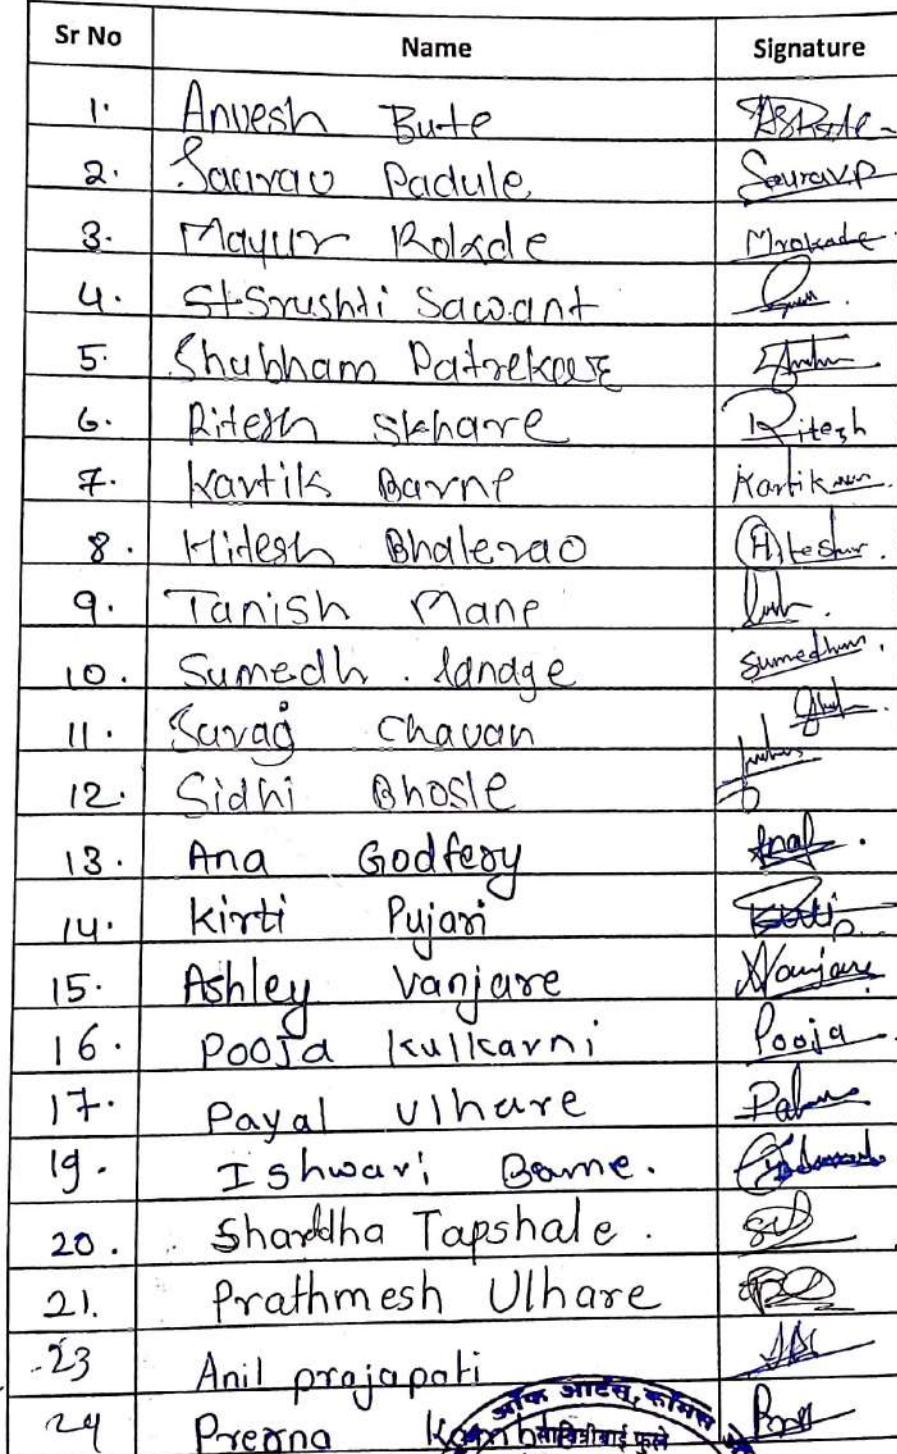 Sr No Name Signature
1. Anvesh Bute
2. Saurav Padule Saurav.P
3. Mayur Rokade Mrokade
4. Srushti Sawant
5. Shubham Patrekar
6. Ritesh Skhare Ritesh
7. Kartik Barne Kartik
8. Hitesh Bhalerao Hitesh
9. Tanish Mane
10. Sumedh. landge Sumedh
11. Sarag Chavan
12. Sidhi Bhosle
13. Ana Godfery
14. Kirti Pujari
15. Ashley Vanjare Vanjare
16. Pooja Kulkarni Pooja
17. Payal Ulhare
19. Ishwari Barne.
20. Sharddha Tapshale.
21. Prathmesh Ulhare
23 Anil prajapati
ऑफ आर्टस, कॉमर्स
24 Prerna
सावित्रीबाई फुले